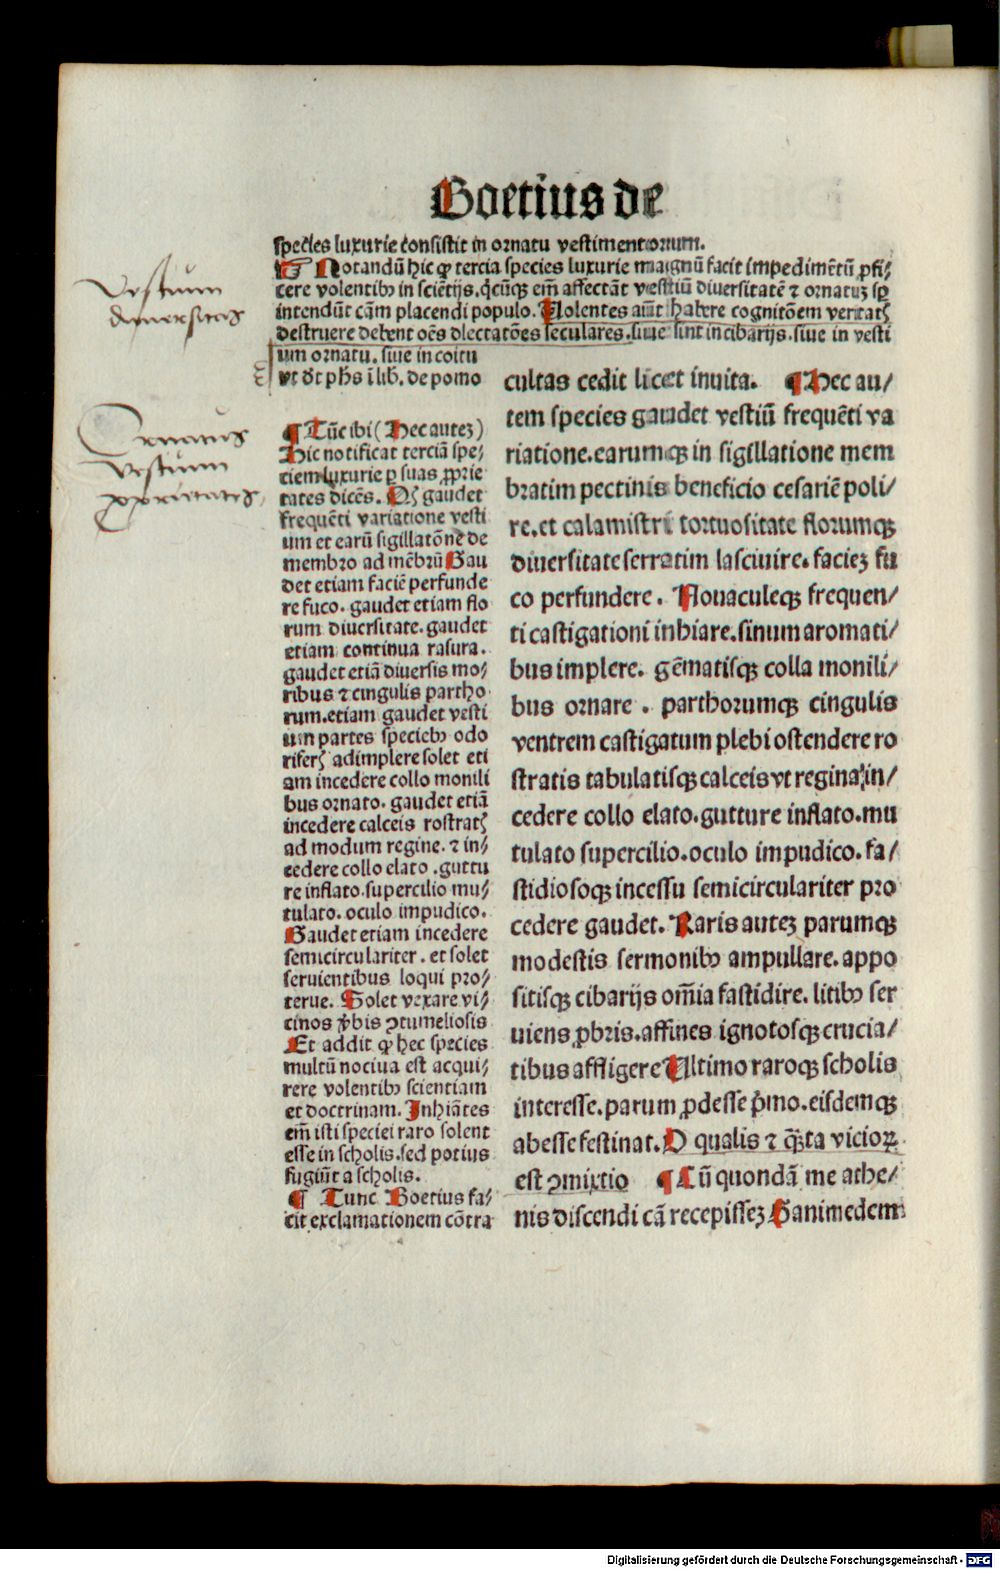 Boetius de
species luxurie consistit in ornatu vestimentorum.
☞ Notandū hic ꝙ tercia species luxurie magnū facit impedimētū ꝓfi⸗
cere volentibꝰ in sciētijs. q̄cūqꝫ em̄ affectāt vestiū diuersitatē ⁊ ornatuꝫ sꝑ
intendūt cām placendi populo. Nolentes aūt habere cognitōem veritatꝭ
destruere debent oēs dlectatōes seculares. siue sint in cibarijs. siue in vesti
um ornatu. siue in coitu
vt dr̄t phs ī lib. de pomo
Vestium
diuersitas
¶ Tūc ibi (Hec auteꝫ)
Hic notificat terciā spe⸗
ciem luxurie ꝑ suas ꝓprie
tates dicēs. Qꝫ gaudet
frequēti variatione vesti
um et earū sigillatōne de
membro ad mēbrū Gau
det etiam faciē perfunde
re fuco. gaudet etiam flo
rum diuersitate. gaudet
etiam continua rasura.
gaudet etiā diuersis mo⸗
ribus ⁊ cingulis partho
rum. etiam gaudet vesti
um partes speciebꝰ odo
riferꝭ adimplere solet eti
am incedere collo monili
bus ornato. gaudet etiā
incedere calceis rostratꝭ
ad modum regine. ⁊ in⸗
cedere collo elato. guttu
re inflato. supercilio mu⸗
tulato. oculo impudico.
Gaudet etiam incedere
semicirculariter. et solet
seruientibus loqui pro⸗
terue. Solet vexare vi⸗
cinos v̄bis ꝯtumeliosis
Et addit ꝙ hec species
multū nociua est acqui⸗
rere volentibꝰ scientiam
et doctrinam. Inhiātes
em̄ isti speciei raro solent
esse in scholis. sed potius
fugiūt a scholis.
¶ Tunc Boetius fa⸗
cit exclamationem cōtra
Ornatus
vestium
ꝓprietates
cultas cedit licet inuita. ¶ Hec au⸗
tem species gaudet vestiū frequēti va
riatione. earumqꝫ in sigillatione mem
bratim pectinis beneficio cesariē poli⸗
re. et calamistri tortuositate florumqꝫ
diuersitate serratim lasciuire. facieꝫ fu
co perfundere. Nouaculeqꝫ frequen⸗
ti castigationi inhiare. sinum aromati⸗
bus implere. gēmatisqꝫ colla monili⸗
bus ornare. parthorumqꝫ cingulis
ventrem castigatum plebi ostendere ro
stratis tabulatisqꝫ calceis vt regina in⸗
cedere collo elato. gutture inflato. mu
tulato supercilio. oculo impudico. fa⸗
stidiosoqꝫ incessu semicirculariter pro
cedere gaudet. Raris auteꝫ parumqꝫ
modestis sermonibꝰ ampullare. appo
sitisqꝫ cibarijs om̄ia fastidire. litibꝰ ser
uiens ꝓbris. affines ignotosqꝫ crucia⸗
tibus affligere Ultimo raroqꝫ scholis
interesse. parum ꝓdesse p̄mo. eisdemqꝫ
abesse festinat. O qualis ⁊ q̄ta vicioꝝ
est ꝯmixtio ¶ Cū quondā me athe⸗
nis discendi cā recepisseꝫ Ganimedem
Digitalisierung gefördert durch die Deutsche Forschungsgemeinschaft - DFG